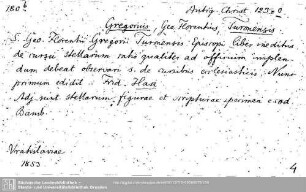 180 b Antiq. Christ. 123 d
Gregorius, Geo. Florentius, Turonensis
S. Geo. Florentii Gregorii Turonensis Episcopi liber ineditus
de cursu stellarum ratio qualiter ad officium implen-
dum debeat observari s. de cursibus ecclesiasticis Nunc
primum edidit Frid. Haase
Adj. sunt stellarum figurae et scripturae specimen e cod.
Bamb.
Vratislaviae
1853
4